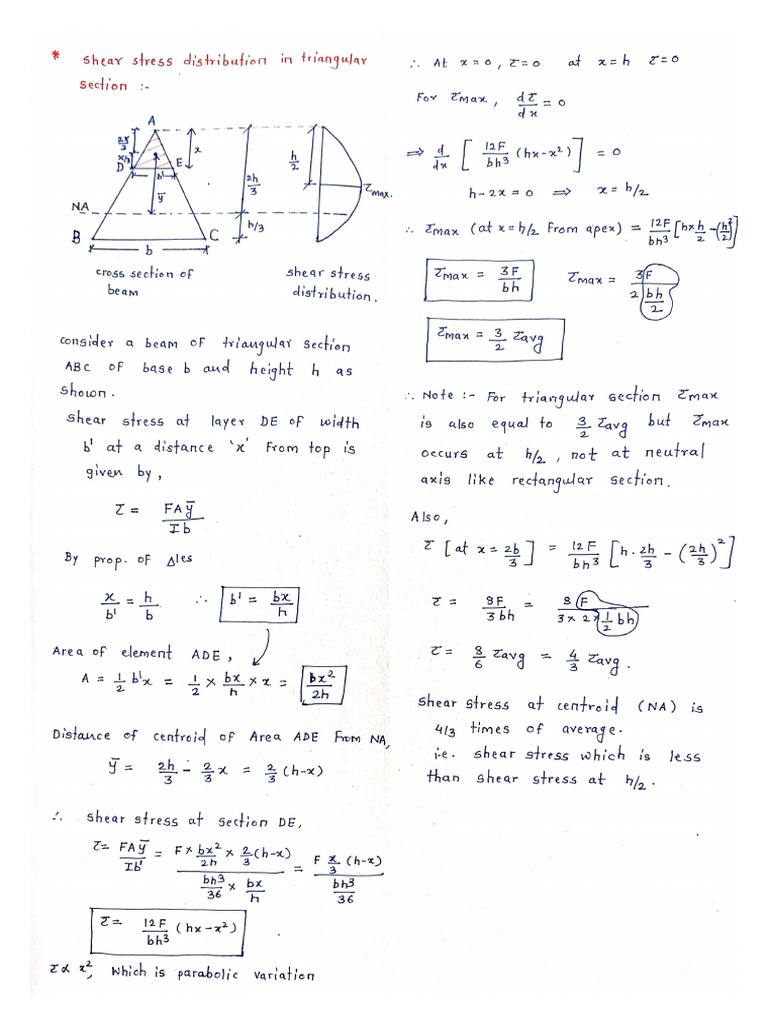 * Shear stress distribution in triangular
section :-
A
2x/3
x/3
D
E
b'
x
ȳ
2h/3
h/2
τmax.
NA
h/3
B
C
b
cross section of
beam
shear stress
distribution.
Consider a beam of triangular section
ABC of base b and height h as
shown.
Shear stress at layer DE of width
b' at a distance 'x' From top is
given by,
τ = FAȳ / Ib
By prop. of Δles
x/b' = h/b ∴ b' = bx/h
Area of element ADE,
A = 1/2 b'x = 1/2 × bx/h × x = bx²/2h
Distance of centroid of Area ADE From NA,
ȳ = 2h/3 - 2/3 x = 2/3 (h-x)
∴ shear stress at section DE,
τ = FAȳ / Ib' = (F × bx²/2h × 2/3 (h-x)) / (bh³/36 × bx/h) = (F x/3 (h-x)) / (bh³/36)
τ = 12F/bh³ (hx-x²)
τ ∝ x², which is parabolic variation
∴ At x=0, τ=0 at x=h τ=0
For τmax, dτ/dx = 0
⇒ d/dx [ 12F/bh³ (hx-x²) ] = 0
h-2x=0 ⇒ x = h/2
∴ τmax (at x=h/2 From apex) = 12F/bh³ [h×h/2 - (h/2)²]
τmax = 3F/bh τmax = 3F / (2 bh/2)
τmax = 3/2 τavg
∴ Note :- For triangular section τmax
is also equal to 3/2 τavg but τmax
occurs at h/2, not at neutral
axis like rectangular section.
Also,
τ [at x = 2b/3] = 12F/bh³ [h. 2h/3 - (2h/3)²]
τ = 8F/3bh = 8F / (3×2×1/2 bh)
τ = 8/6 τavg = 4/3 τavg.
Shear stress at centroid (NA) is
4/3 times of average.
i.e. shear stress which is less
than shear stress at h/2.